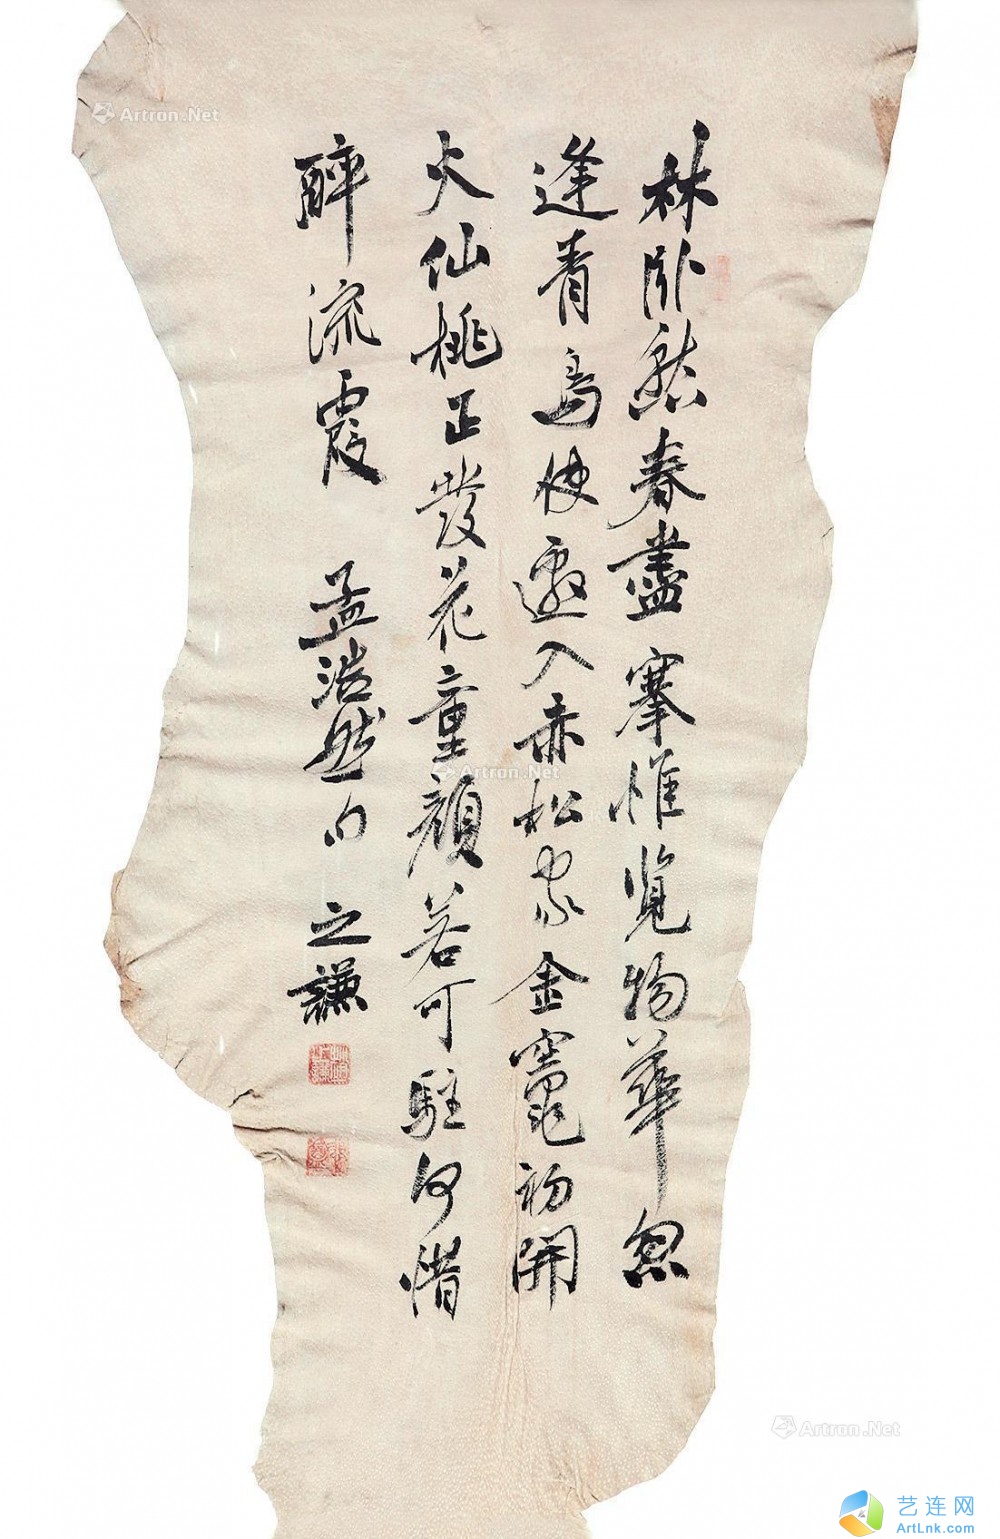 林卧愁春盡搴帷覽物華忽
逢青鳥使邀入赤松家金竈初開
火仙桃正發花童顏若可駐何惜
醉流霞 孟浩然句 之謙
Artron.Net
Artron.Net
Artron.Net
艺连网
ArtLnk.com